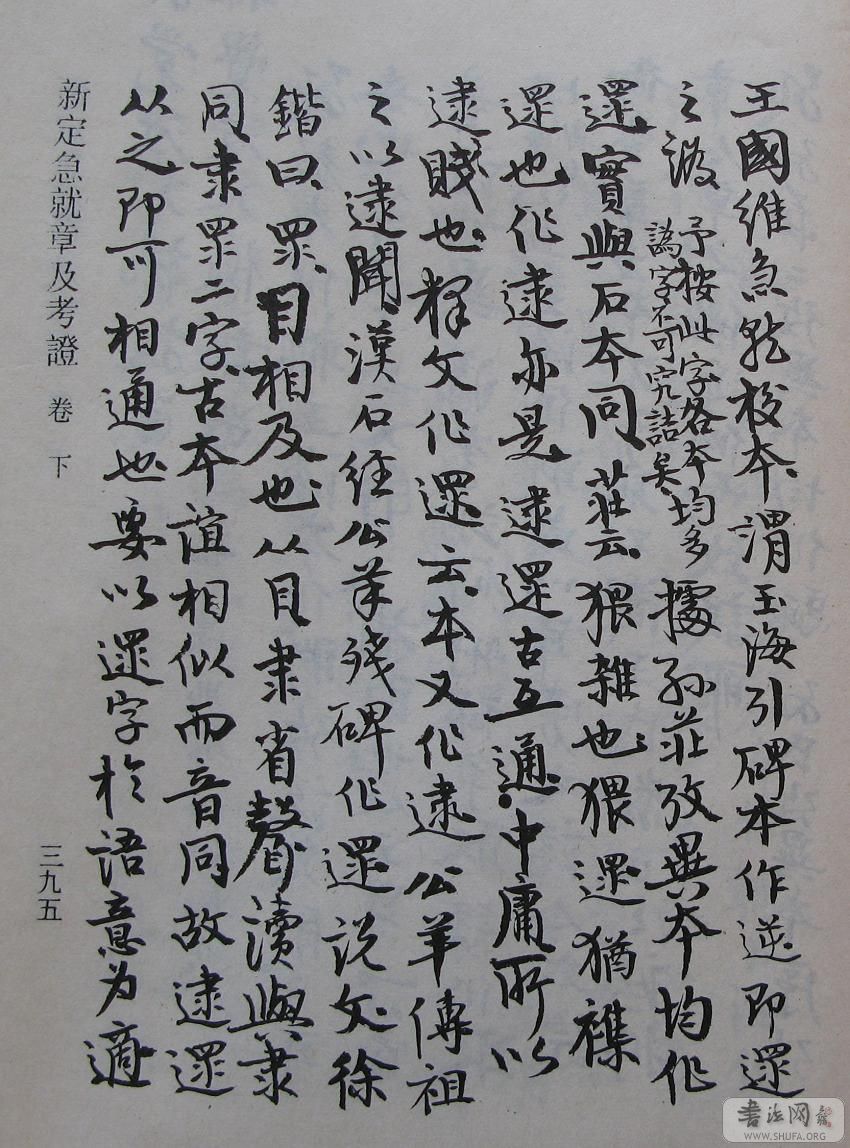 王國維急就校本謂玉海引碑本作逆即遝
之譌
予按此字各本均多
譌字不可究詰矣
據孫莊攷異本均作
遝實與石本同莊云猥雜也猥遝猶襍
遝也作逮亦是逮遝古互通中庸所以
逮賤也釋文作遝云本又作逮公羊傳祖
之以逮聞漢石經公羊殘碑作遝說文徐
鍇曰眔目相及也从目隶省聲讀與隶
同隶眔二字古本誼相似而音同故逮遝
从之即可相通也要以遝字於語意为適
新定急就章及考證 卷下
三九五
書法网
WWW.SHUFA.ORG